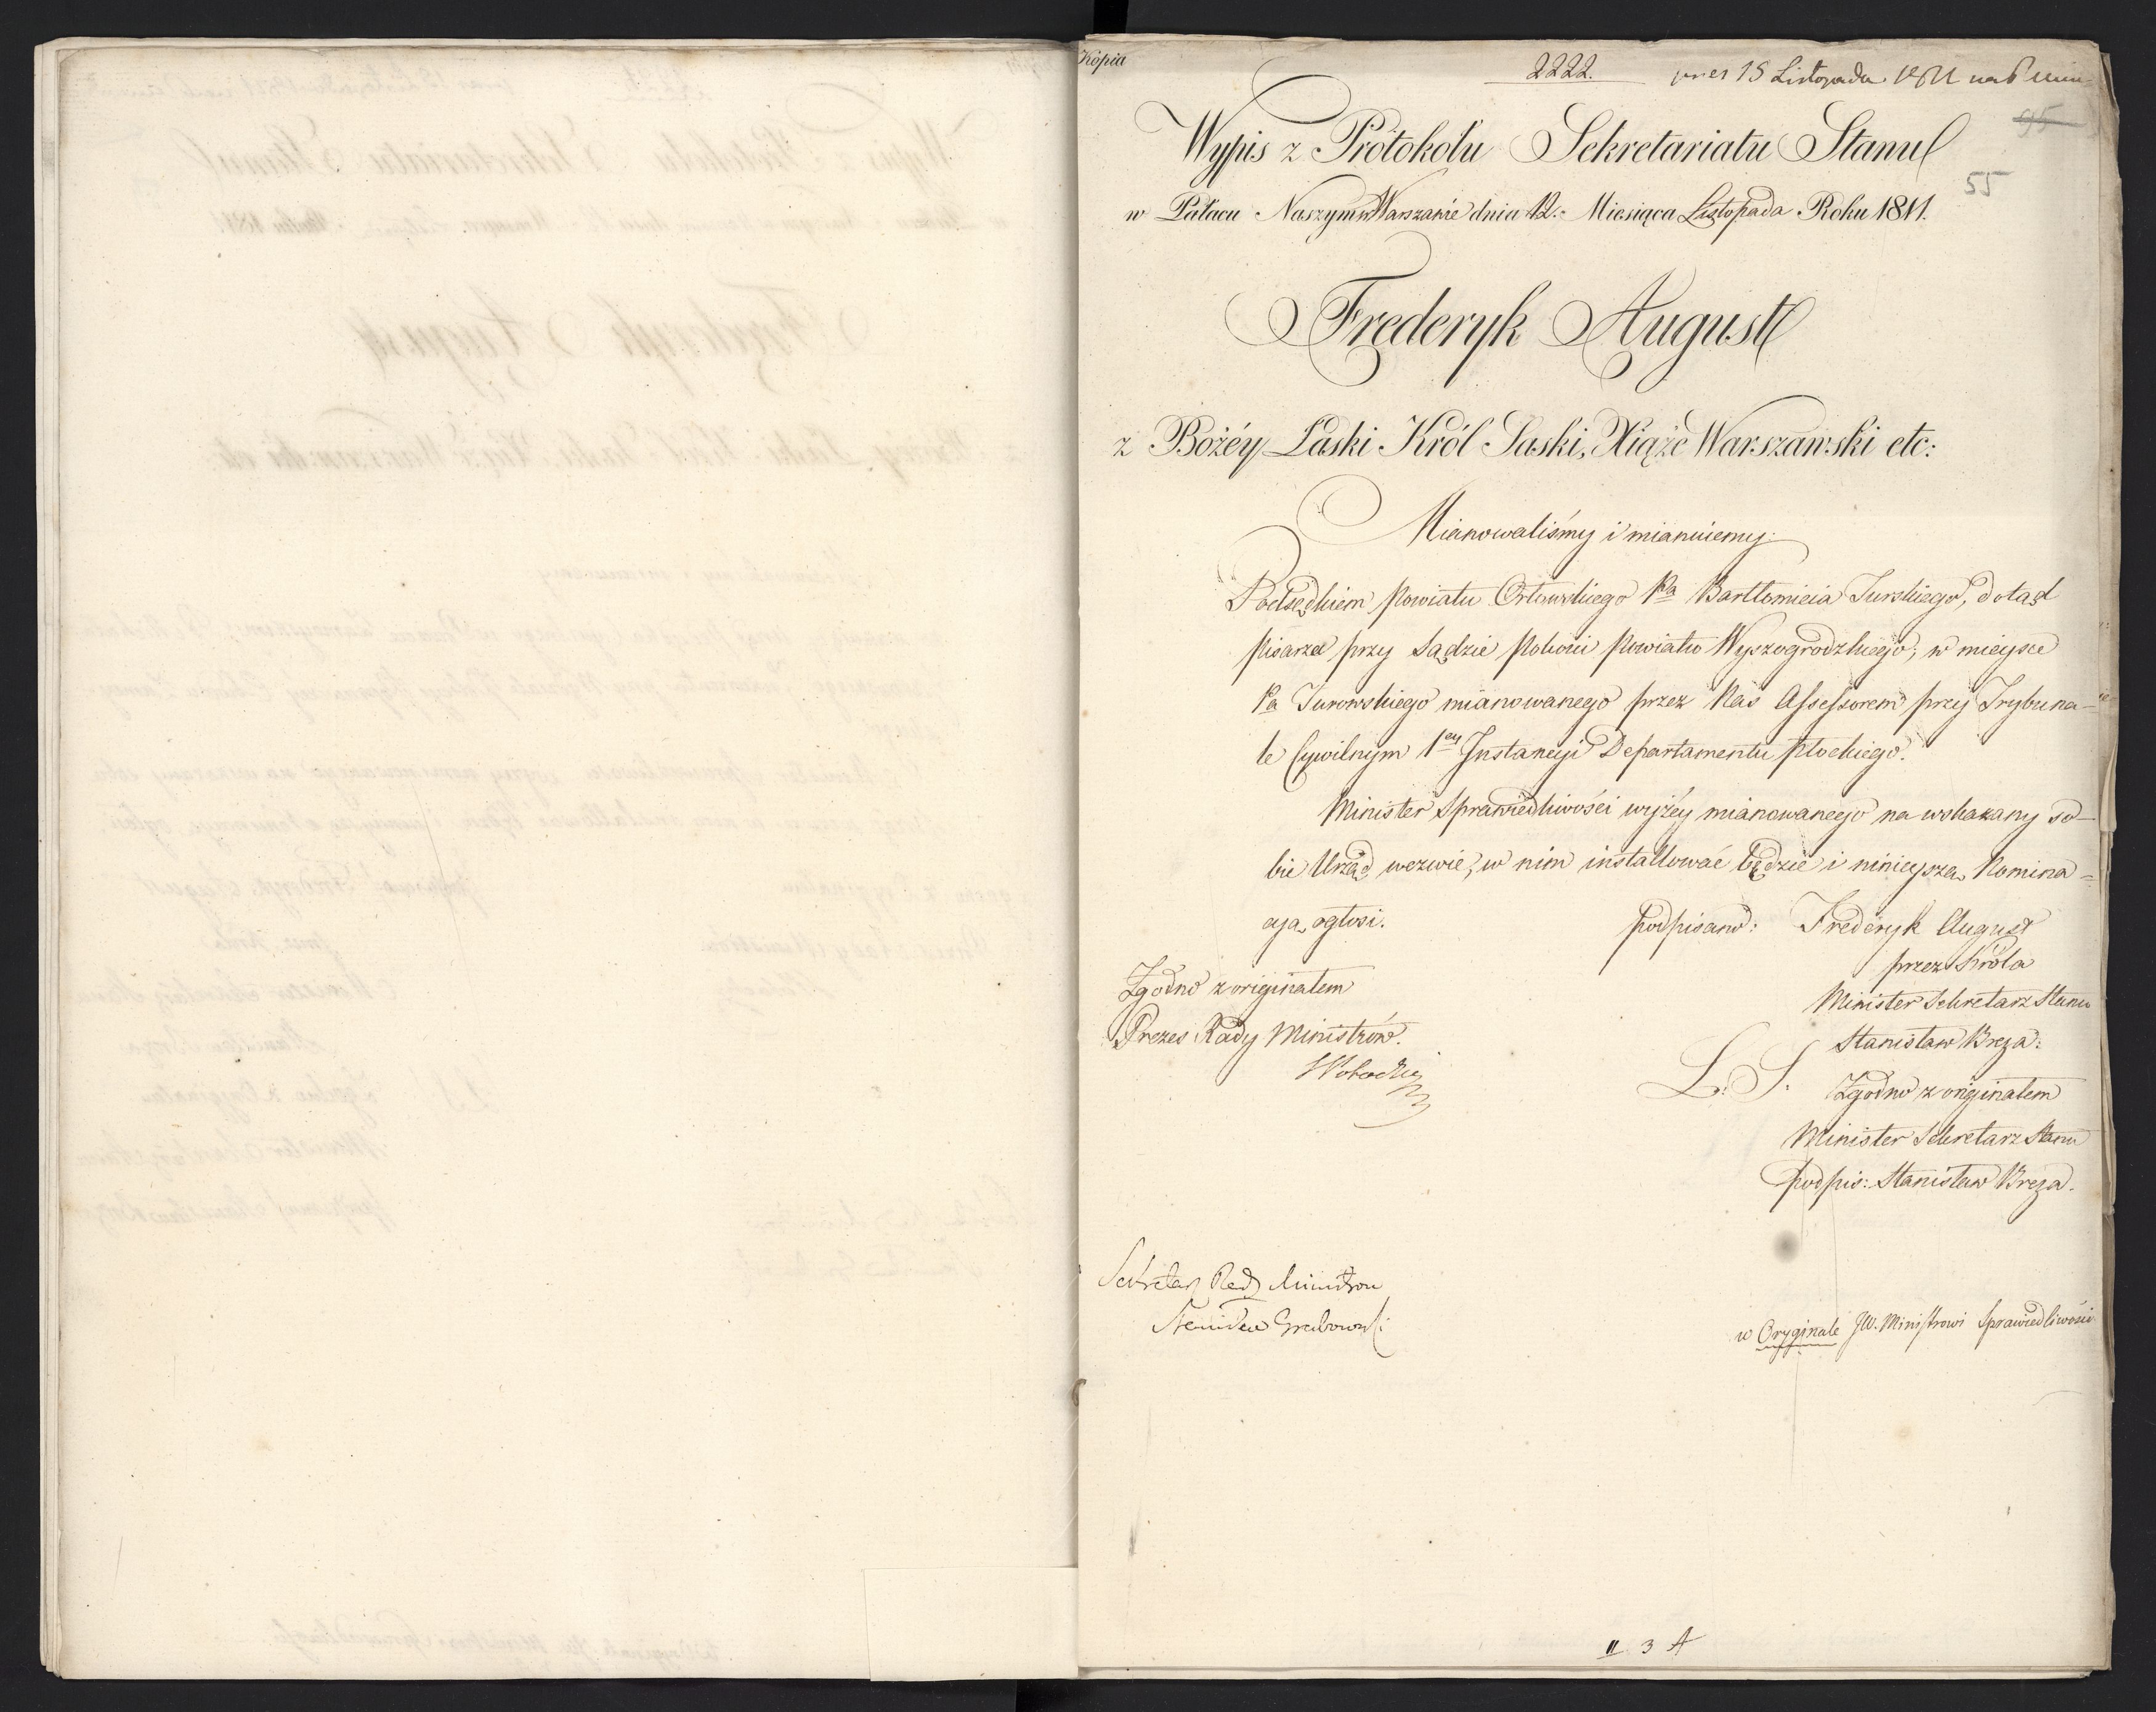 Kopia
2222.
15 Listopada 1811
95
Wypis z Protokółu Sekretariatu Stanu
55
w Pałacu Naszym w Warszawie dnia 12. Miesiąca Listopada Roku 1811.
Frederyk August
z Bożéy Łaski Król Saski, Xiąże Warszawski etc:
Mianowaliśmy i mianuiemy:
Podsędkiem Powiatu Orłowskiego Pa Bartłomieia Turskiego, dotąd
Pisarza przy Sądzie Pokoiu Powiatu Wyszogrodzkiego, w mieysce
Pa Turowskiego mianowanego przez Nas Assessorem przy Trybuna-
le Cywilnym 1ey Instancyi Departamentu Płockiego.
Minister Sprawiedliwości wyżéy mianowanego na wskazany so-
bie Urząd wezwie, w nim installować będzie i ninieyszą Nomina=
cyą ogłosi.
podpisano: Frederyk August
przez Króla
Minister Sekretarz Stanu
Stanisław Breza:
Zgodno z originałem
Prezes Rady Ministrów.
L. S. Zgodno z originałem
Minister Sekretarz Stanu
podpis: Stanisław Breza.
Sekretarz Rady Ministrow
Stanisław Grabowski
w Oryginale JW. Ministrowi Sprawiedliwości
II 3 A